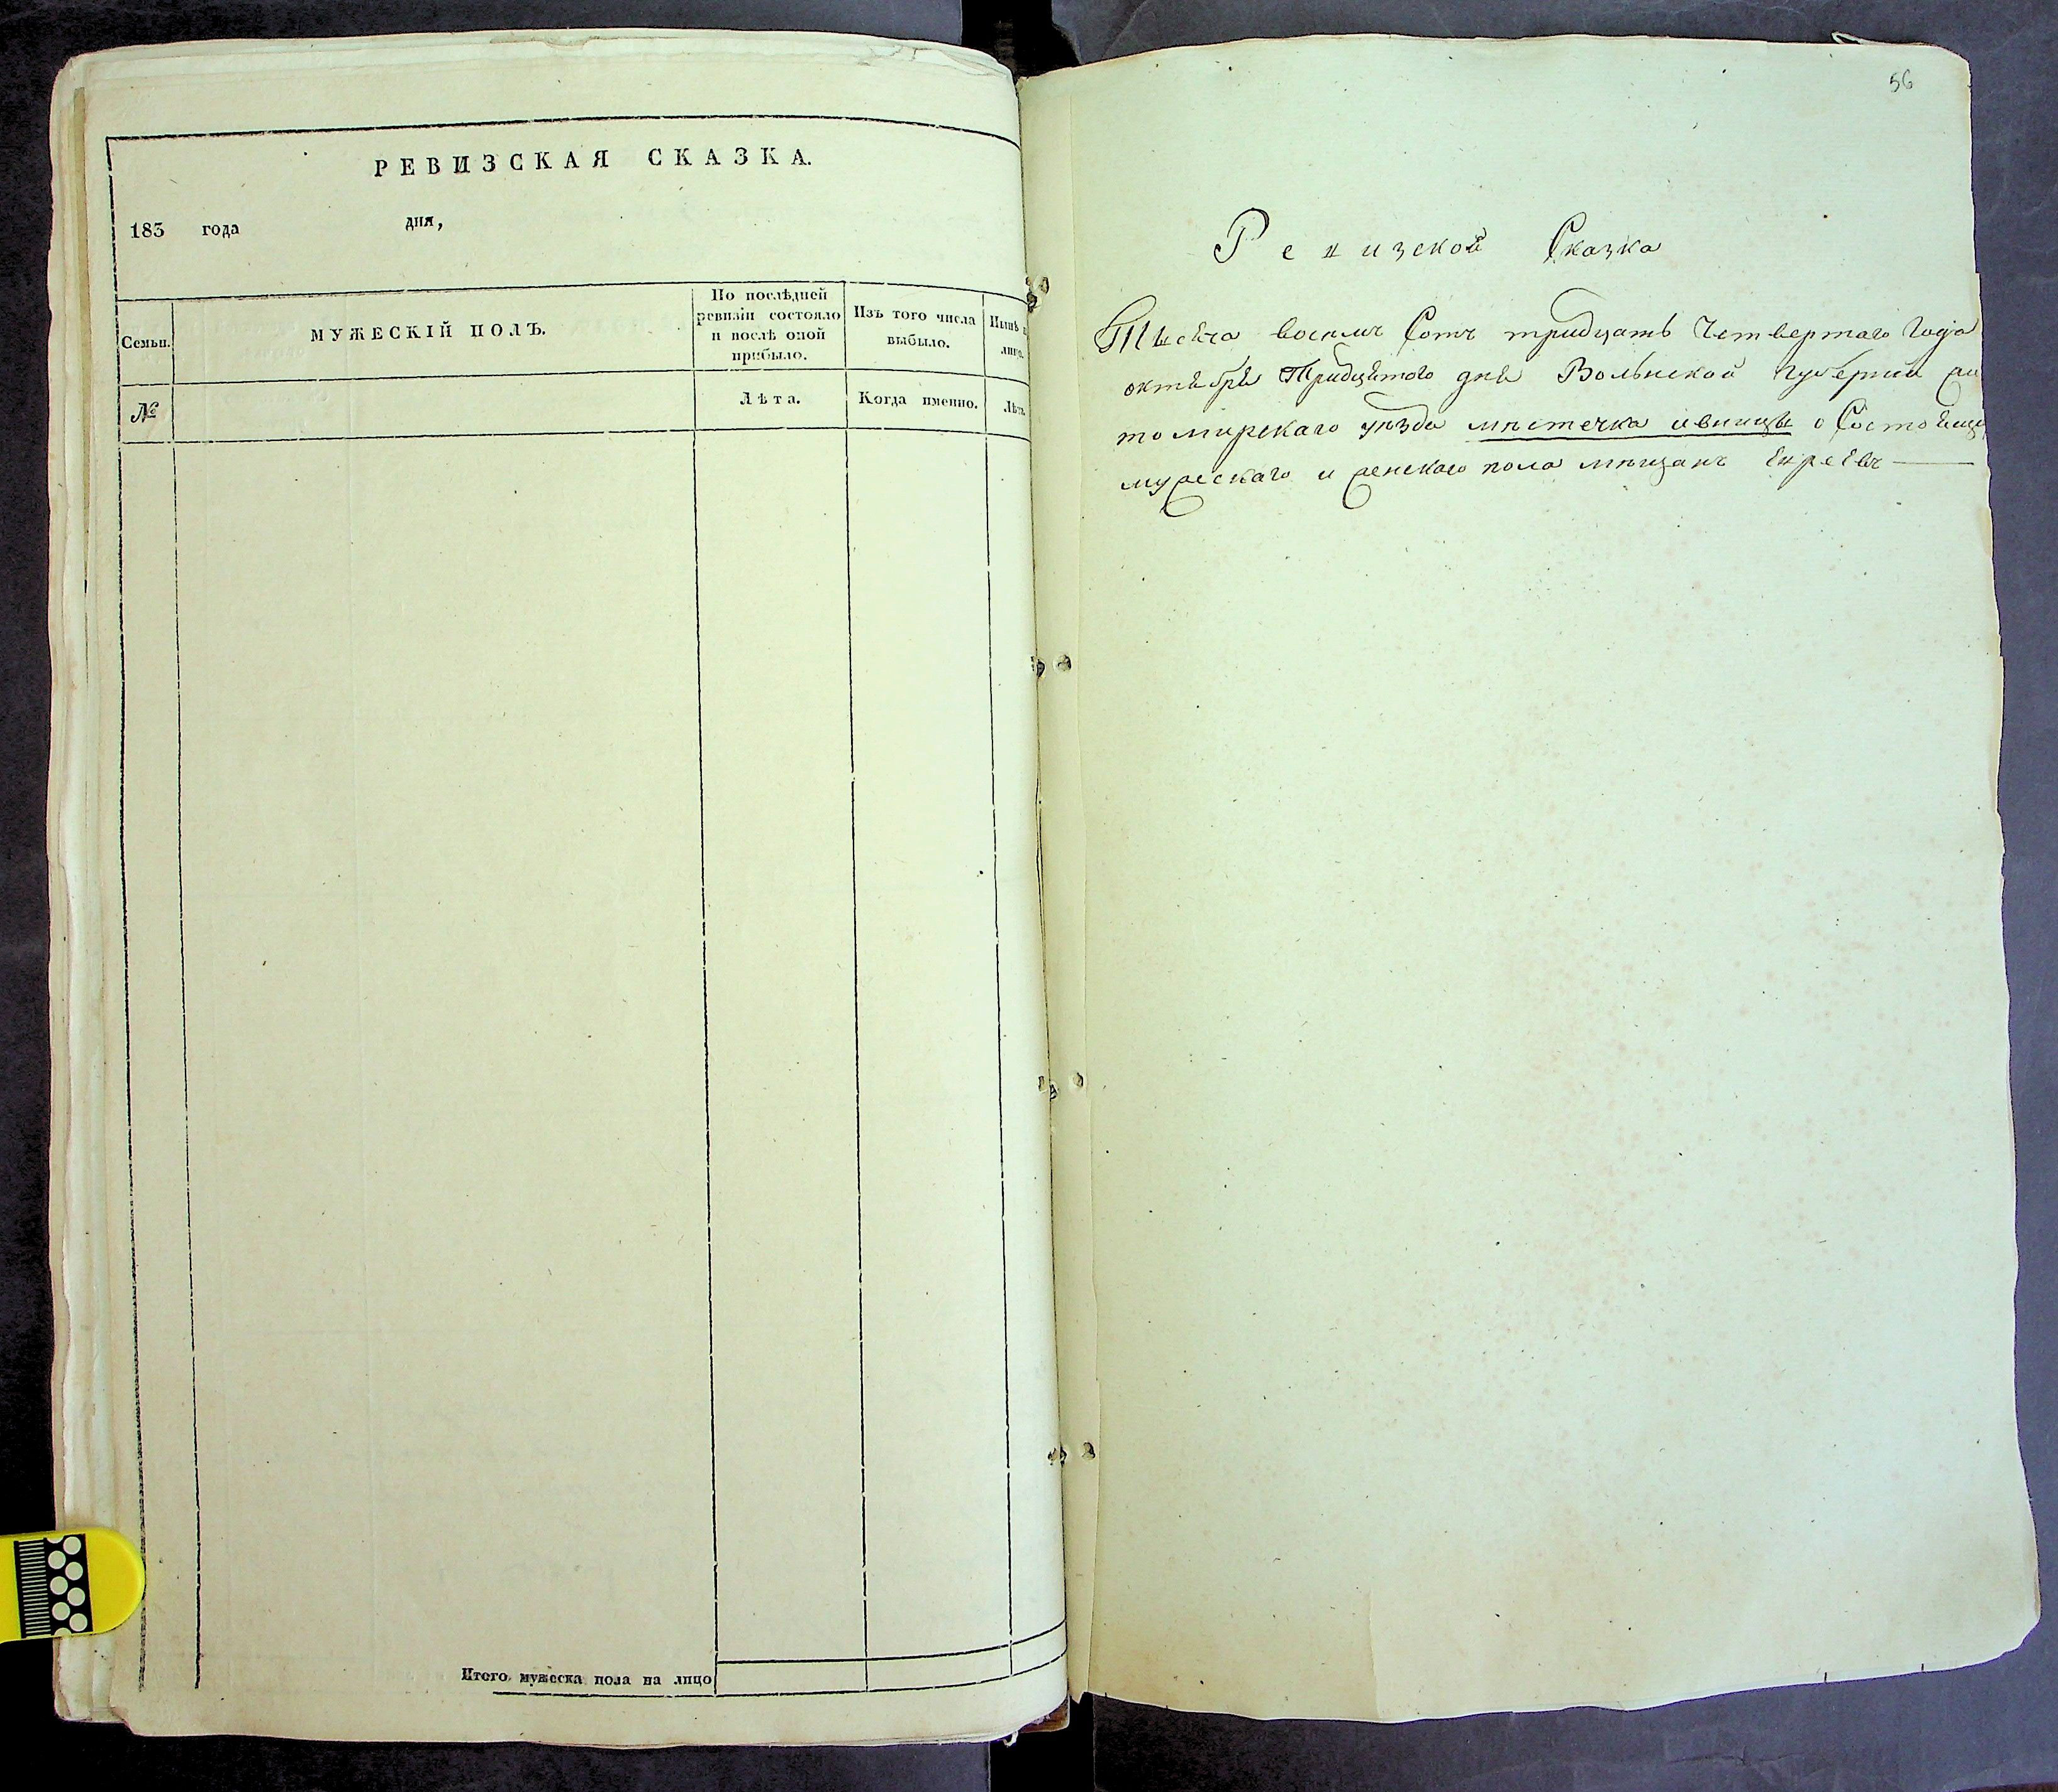 РЕВИЗСКАЯ СКАЗКА.
183 года дня,
Семьи.
МУЖЕСКІЙ ПОЛЪ.
По послѣдней
ревизіи состояло
и послѣ оной
прибыло.
Изъ того числа
выбыло.
Нынѣ
лицо.
№
Лѣта.
Когда именно.
Лѣта
Итого мужеска пола на лицо
56
Ревизской Сказка
Тысяча восемъ Сотъ тридцать Четвертаго Года
октября Тридцятого дня Волынской Губерніи Жи
томирскаго уѣзда мѣстечка ивницы о Состоящи
мужескаго и женскаго пола мѣщанъ Евреевъ